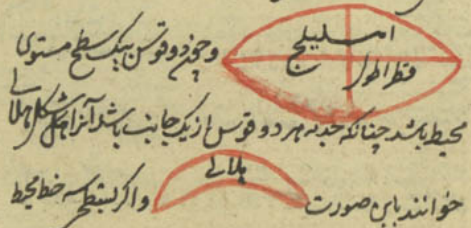 اهلیلج
قطر اطول
و چون دو قوس بیک سطح مستوی
محیط باشد چنانکه حدبه هر دو قوس از یک جانب باشد آنرا شکل هلالی
خوانند باین صورت
هلالی
واکر بسطح سه خط محیط